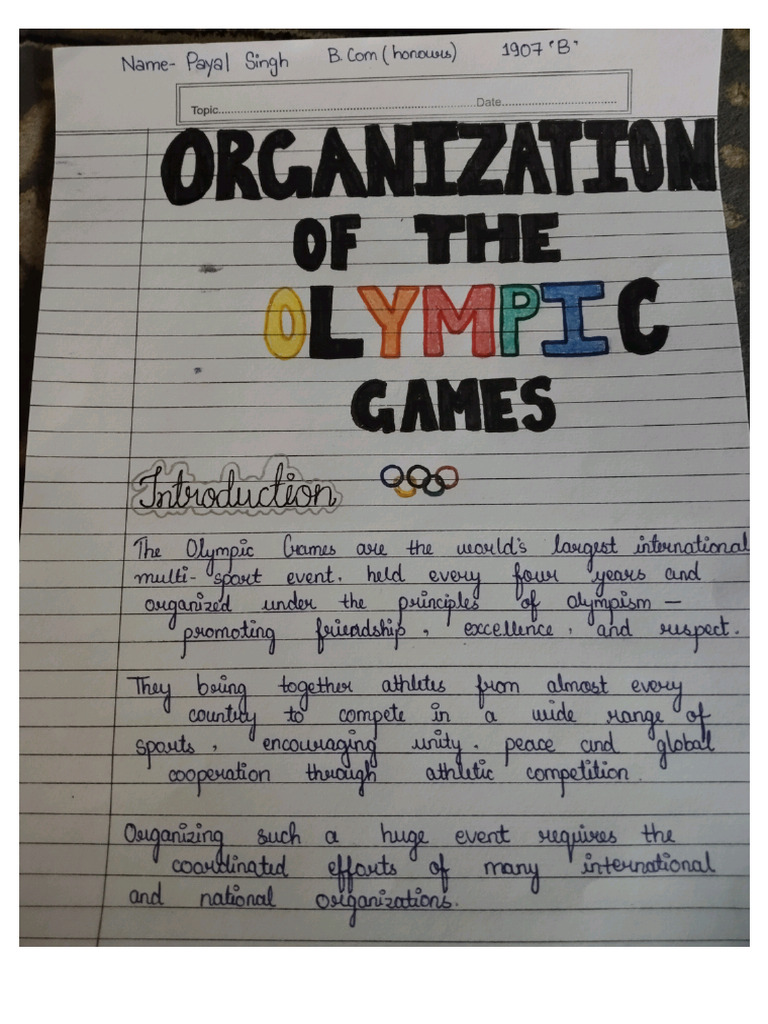 Name- Payal Singh B.Com (honours) 1907 "B"
Topic.....................................................................................Date......................................
ORGANIZATION
OF THE
OLYMPIC
GAMES
Introduction
The Olympic Games are the world's largest international
multi-sport event. held every four years and
organized under the principles of olympism —
promoting friendship, excellence, and respect.
They bring together athletes from almost every
country to compete in a wide range of
sports, encouraging unity. peace and global
cooperation through athletic competition.
Organizing such a huge event requires the
coordinated efforts of many international
and national organizations.